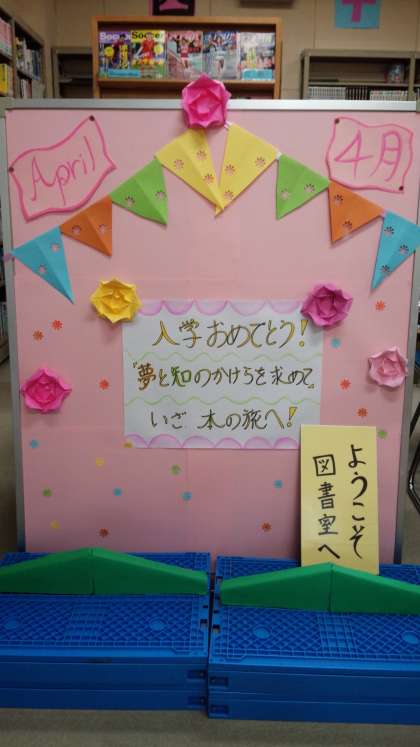 Soccer
Soccer
April
4月
入学おめでとう！
『夢と知のかけらを求めて』
いざ 本の旅へ！
ようこそ
図書室へ